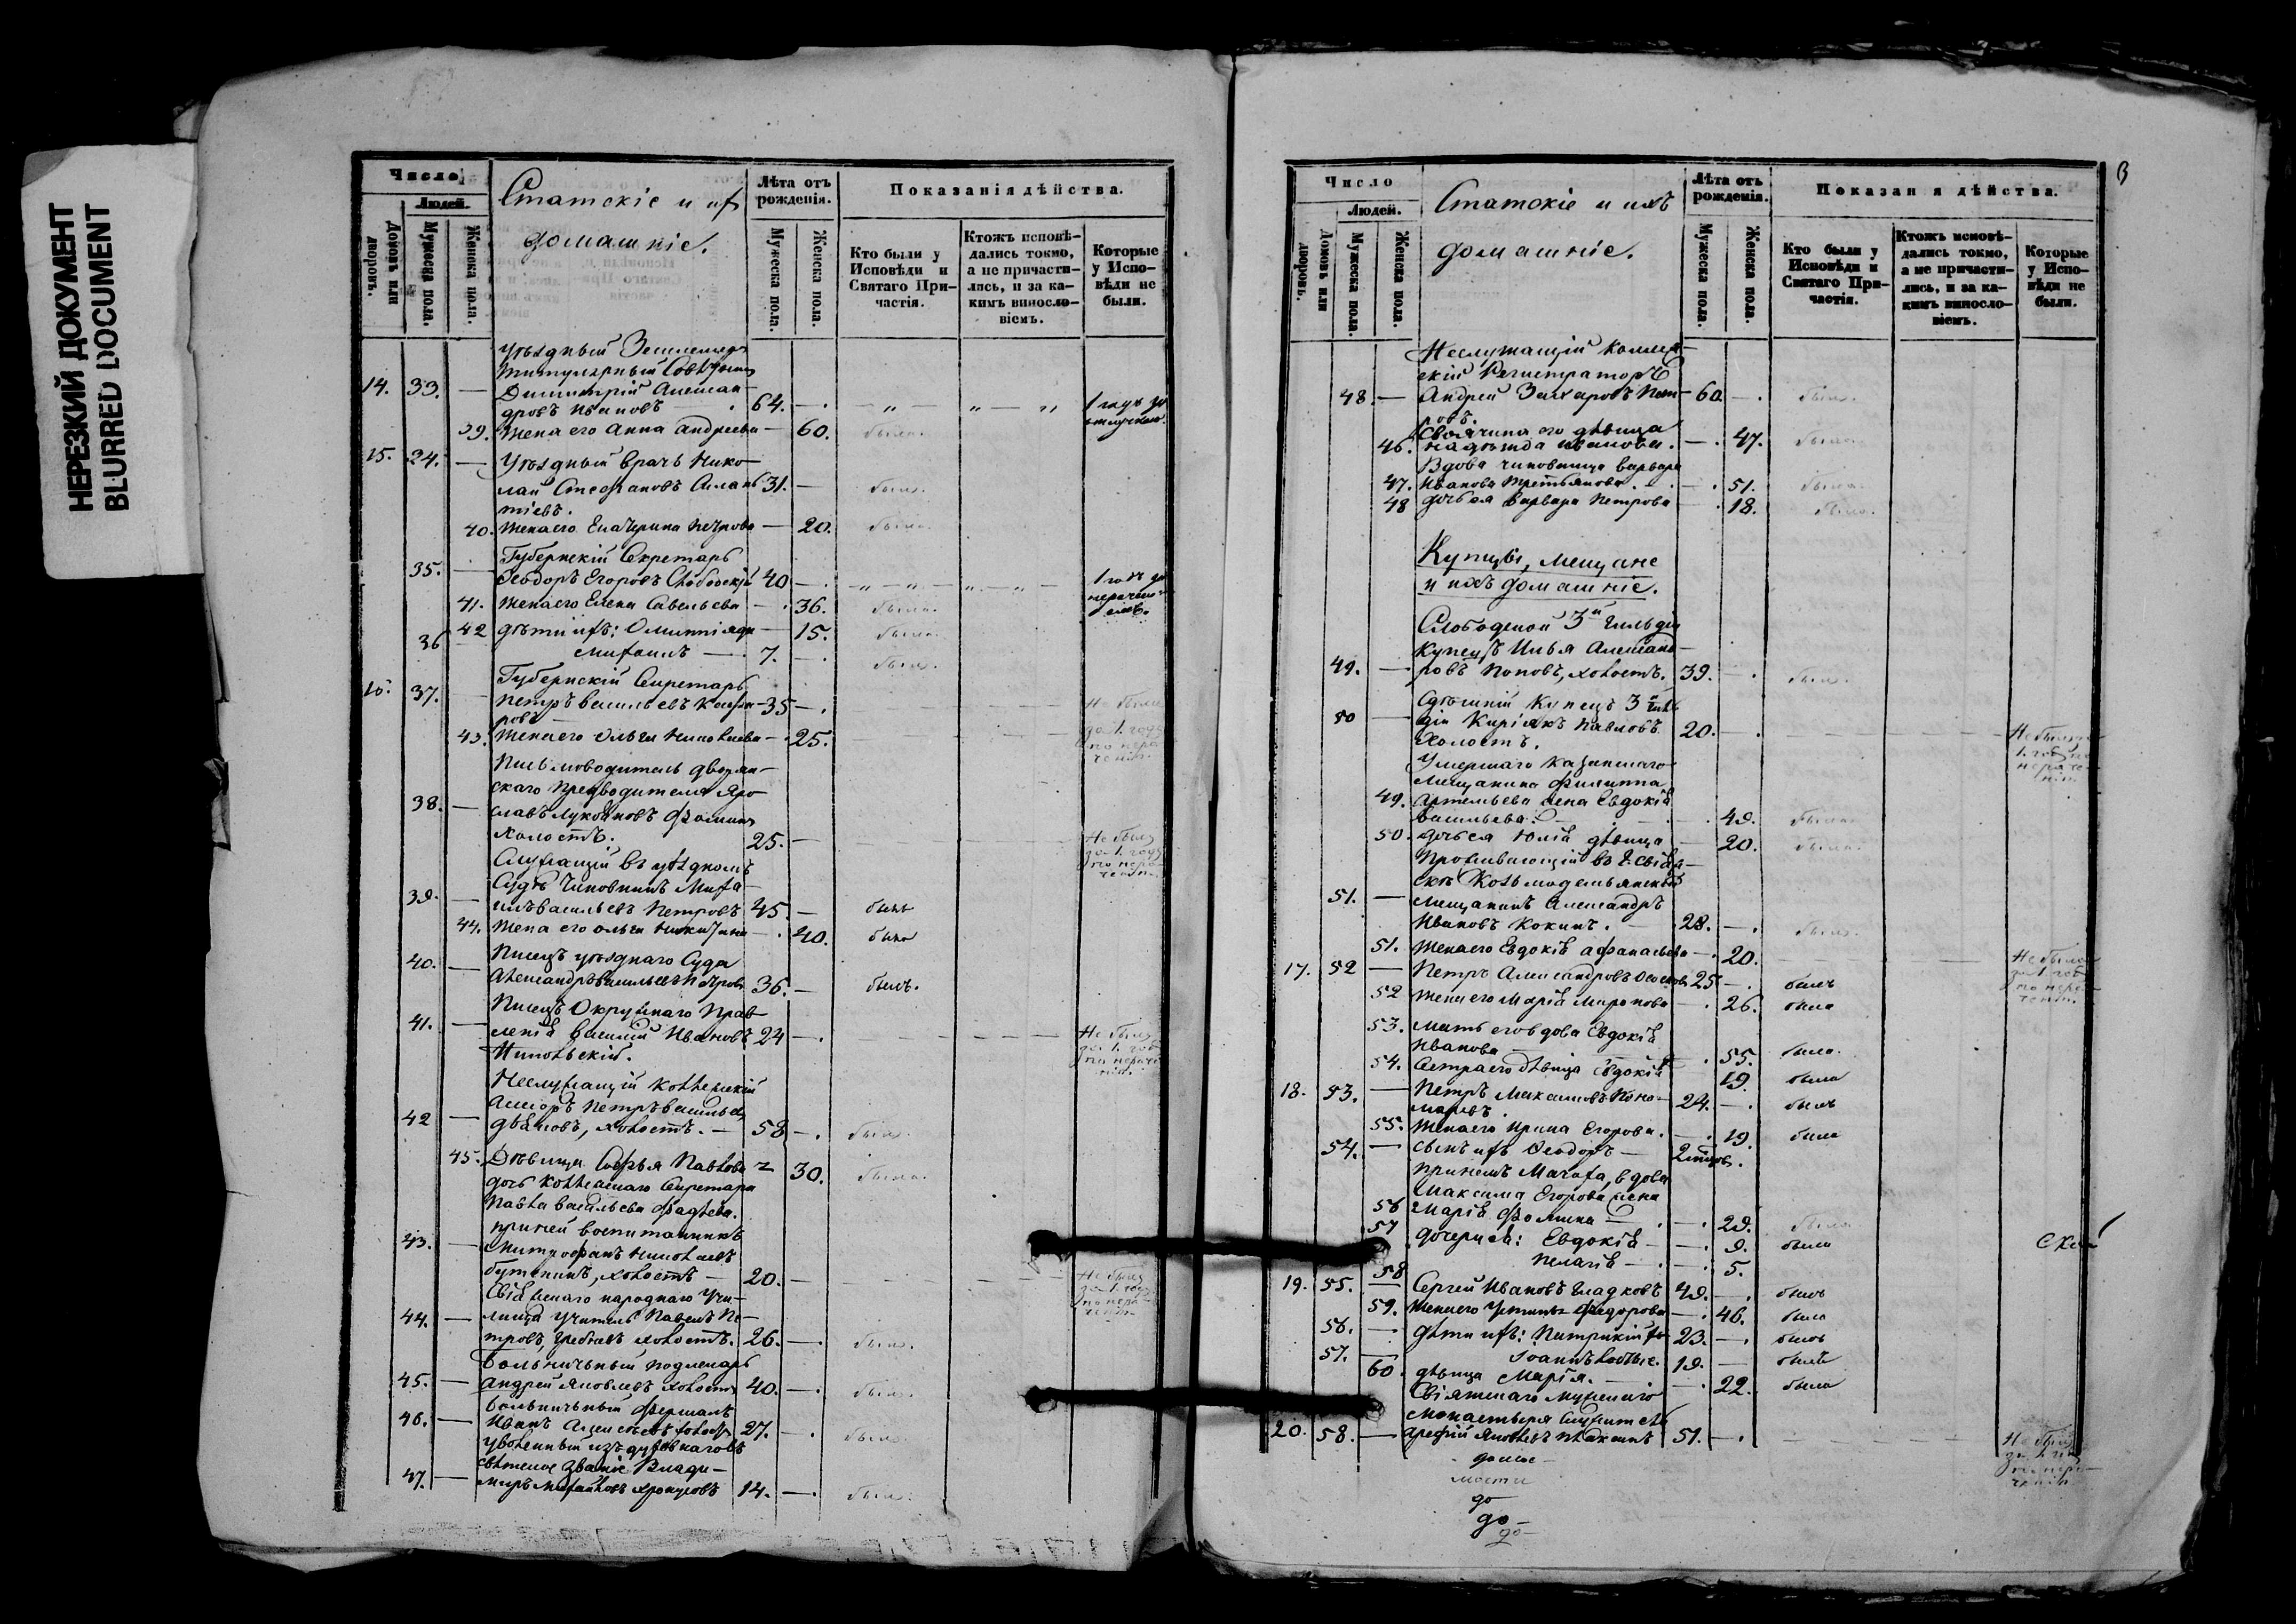 НЕРЕЗКИЙ ДОКУМЕНТ
BLURRED DOCUMENT
Число
Людей.
Домовъ или дворовъ.
Мужеска пола.
Женска пола.
Статскіе и их
домашніе.
Лѣта отъ рожденія.
Мужеска пола.
Женска пола.
Показанія дѣйства.
Кто были у Исповѣди и Святаго Причастія.
Ктожъ исповѣдались токмо, а не причастились, и за какимъ винословіемъ.
Которые у Исповѣди не были.
уѣздный Землемеръ
Титулярный Совѣтникъ
14. 33. — Димитрій Алексан-
дровъ Ивановъ — 64. —
39. жена его Анна Андреева — 60. была.
15. 34. — Уѣздный врачъ Нико-
лай Стефановъ 31. — былъ.
40. жена его Екатерина Петрова — 20. была.
Губернскій Секретарь
35. — Ѳеодоръ Егоровъ 40 —
41. жена его Елена Савельева — 36. была.
42 дѣти их: Олимпіада — 15. была.
36 Михаилъ — 7. — былъ.
Губернскій Секретарь
37. Петръ Васильевъ 35 — Не были
43. жена его Ольга Николаева — 25. за 1. годъ
по нера-
ченію.
Письмоводитель дворян-
скаго Предводителя Яро-
38. — славъ Лукояновъ Ѳоминъ
холостъ. 25. — Не былъ
за 1. годъ
по нера-
ченію.
Служащій въ уѣздномъ
Судѣ Чиновникъ Миха-
39. — илъ Васильевъ Петровъ 45. — былъ
44. жена его Ольга Никитина — 40. была
Писецъ уѣзднаго Суда
40. — Александръ Васильевъ Петровъ 36. — былъ.
Писецъ Окружнаго Прав-
41. — ленія Василій Ивановъ 24 — Не былъ
Никольскій.
Неслужащій Коллежскій
Ассесоръ Петръ Васильевъ
42 — холостъ. — 58 — былъ.
45. Дѣвица Софья Павлова 30. была.
дочь Коллежскаго Секретаря
Павла Васильева Фадѣева.
при ней воспитанникъ
43. — Митрофанъ Николаевъ
холостъ — 20. — Не былъ
за 1. годъ
по нера-
ченію
Свіяжскаго народнаго Учи-
44. — лища Учитель Павелъ Пе-
тровъ, холостъ. 26. — былъ.
Больничный подлекарь
45. — Андрей Яковлевъ холостъ 40. — былъ.
Больничный Фершалъ
46. — Иванъ Алексѣевъ холостъ 27. — былъ.
Уволенный изъ духовнаго въ
свѣтское званіе Влади-
47. — миръ Михайловъ 14. — былъ.
Число
Людей.
Домовъ или дворовъ.
Мужеска пола.
Женска пола.
Статскіе и ихъ
домашніе.
Лѣта отъ рожденія.
Мужеска пола.
Женска пола.
Показан я дѣйства.
Кто были у Исповѣди и Святаго Причастія.
Ктожъ исповѣдались токмо, а не причастились, и за какимъ винословіемъ.
Которые у Исповѣди не были.
Неслужащій Коллеж-
скій Регистраторъ
48. — Андрей Захаровъ Пет- 60. — былъ.
ровъ.
Своячина его дѣвица
46. Надежда Иванова. — 47. была.
Вдова чиновница Варвара
47. Иванова Третьякова. — 51. была.
48 дочь ея Варвара Петрова 18. была.
Купцы, мещане
и ихъ домашніе.
Слободской 3й гильдіи
Купецъ Илья Александ-
49. — ровъ Поповъ, холостъ. 39. — былъ.
Здѣшній Купецъ 3й гиль-
50 — діи Киріякъ Павловъ 20. —
холостъ.
Умершаго Казанскаго
мещанина Филиппа
49. Артемьева жена Евдокія
Васильева. — 49. была.
50. дочь ея Юлія дѣвица — 20. была.
Проживающій въ г. Свіяж-
скѣ Козьмодемьянскій
51. — мещанинъ Александръ
Ивановъ Кокинъ. — 28. — былъ.
51. жена его Евдокія Афанасьева — 20. Не была
за 1. год
по нера-
ченію.
17. 52 — Петръ Александровъ 25 — былъ
52 жена его Марія Миронова — 26. была
53. мать его вдова Евдокія
Иванова — 55. была.
54. Сестра его дѣвица Евдокія 19. была
18. 53. — Петръ Максимовъ Поно- 24. — былъ
маревъ.
55. жена его Ирина Егорова. — 19. была
54. — сынъ их Ѳеодоръ — 2
при немъ Мачиха, вдова
Максима Егорова жена
56 Марія Ѳомина — 29. была
57 дочери ея: Евдокія — 9. была
58 Пелагія — 5.
19. 55. — Сергей Ивановъ Гладковъ 49. — былъ
59. жена его Устинья Федорова — 46. была
56. — дѣти их: Патрикій 23. — былъ
57. Іоаннъ холостые. 19. — былъ
60. дѣвица Марія. — 22. была
Свіяжскаго мужскаго
монастыря Служитель
20. 58. — Арефій Яковлевъ 51. — Не былъ
домос-
мости
до
до-
до-